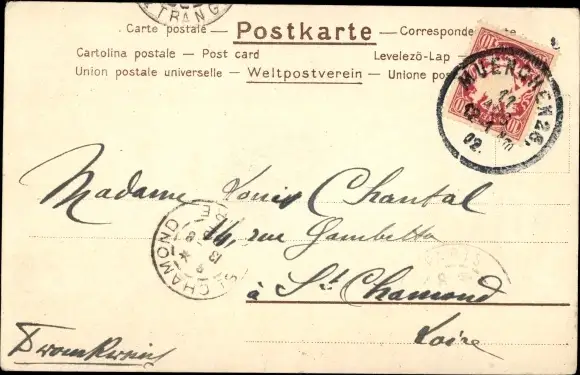 ETRANG
Carte postale — Postkarte — Corresponde
Cartolina postale — Post card Levelezö-Lap —
Union postale universelle — Weltpostverein — Unione po
MUENCHEN 26.
12-1 Nm
02.
10
Madame Louis Chantal
14, rue Gambetta
ST CHAMOND
à St. Chamond
Loire